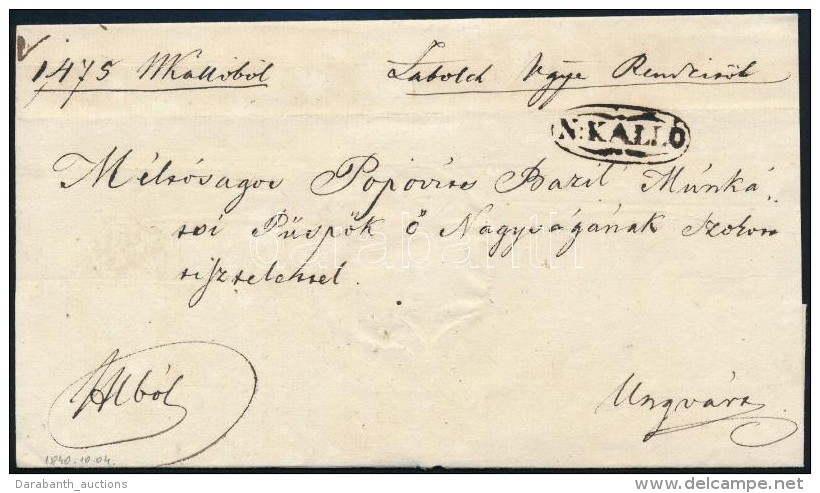 1475 NKallóból Sabolch Vgye Rendeisöl
N:KALLÓ
Méltóságos Popovics Bazil Munká-
tsi Püspök ő Nagyságának szokott
tisztelettel
Ungvárt
1840.10.04.
darabanth
Darabanth_auctions
http://www.delcampe.net